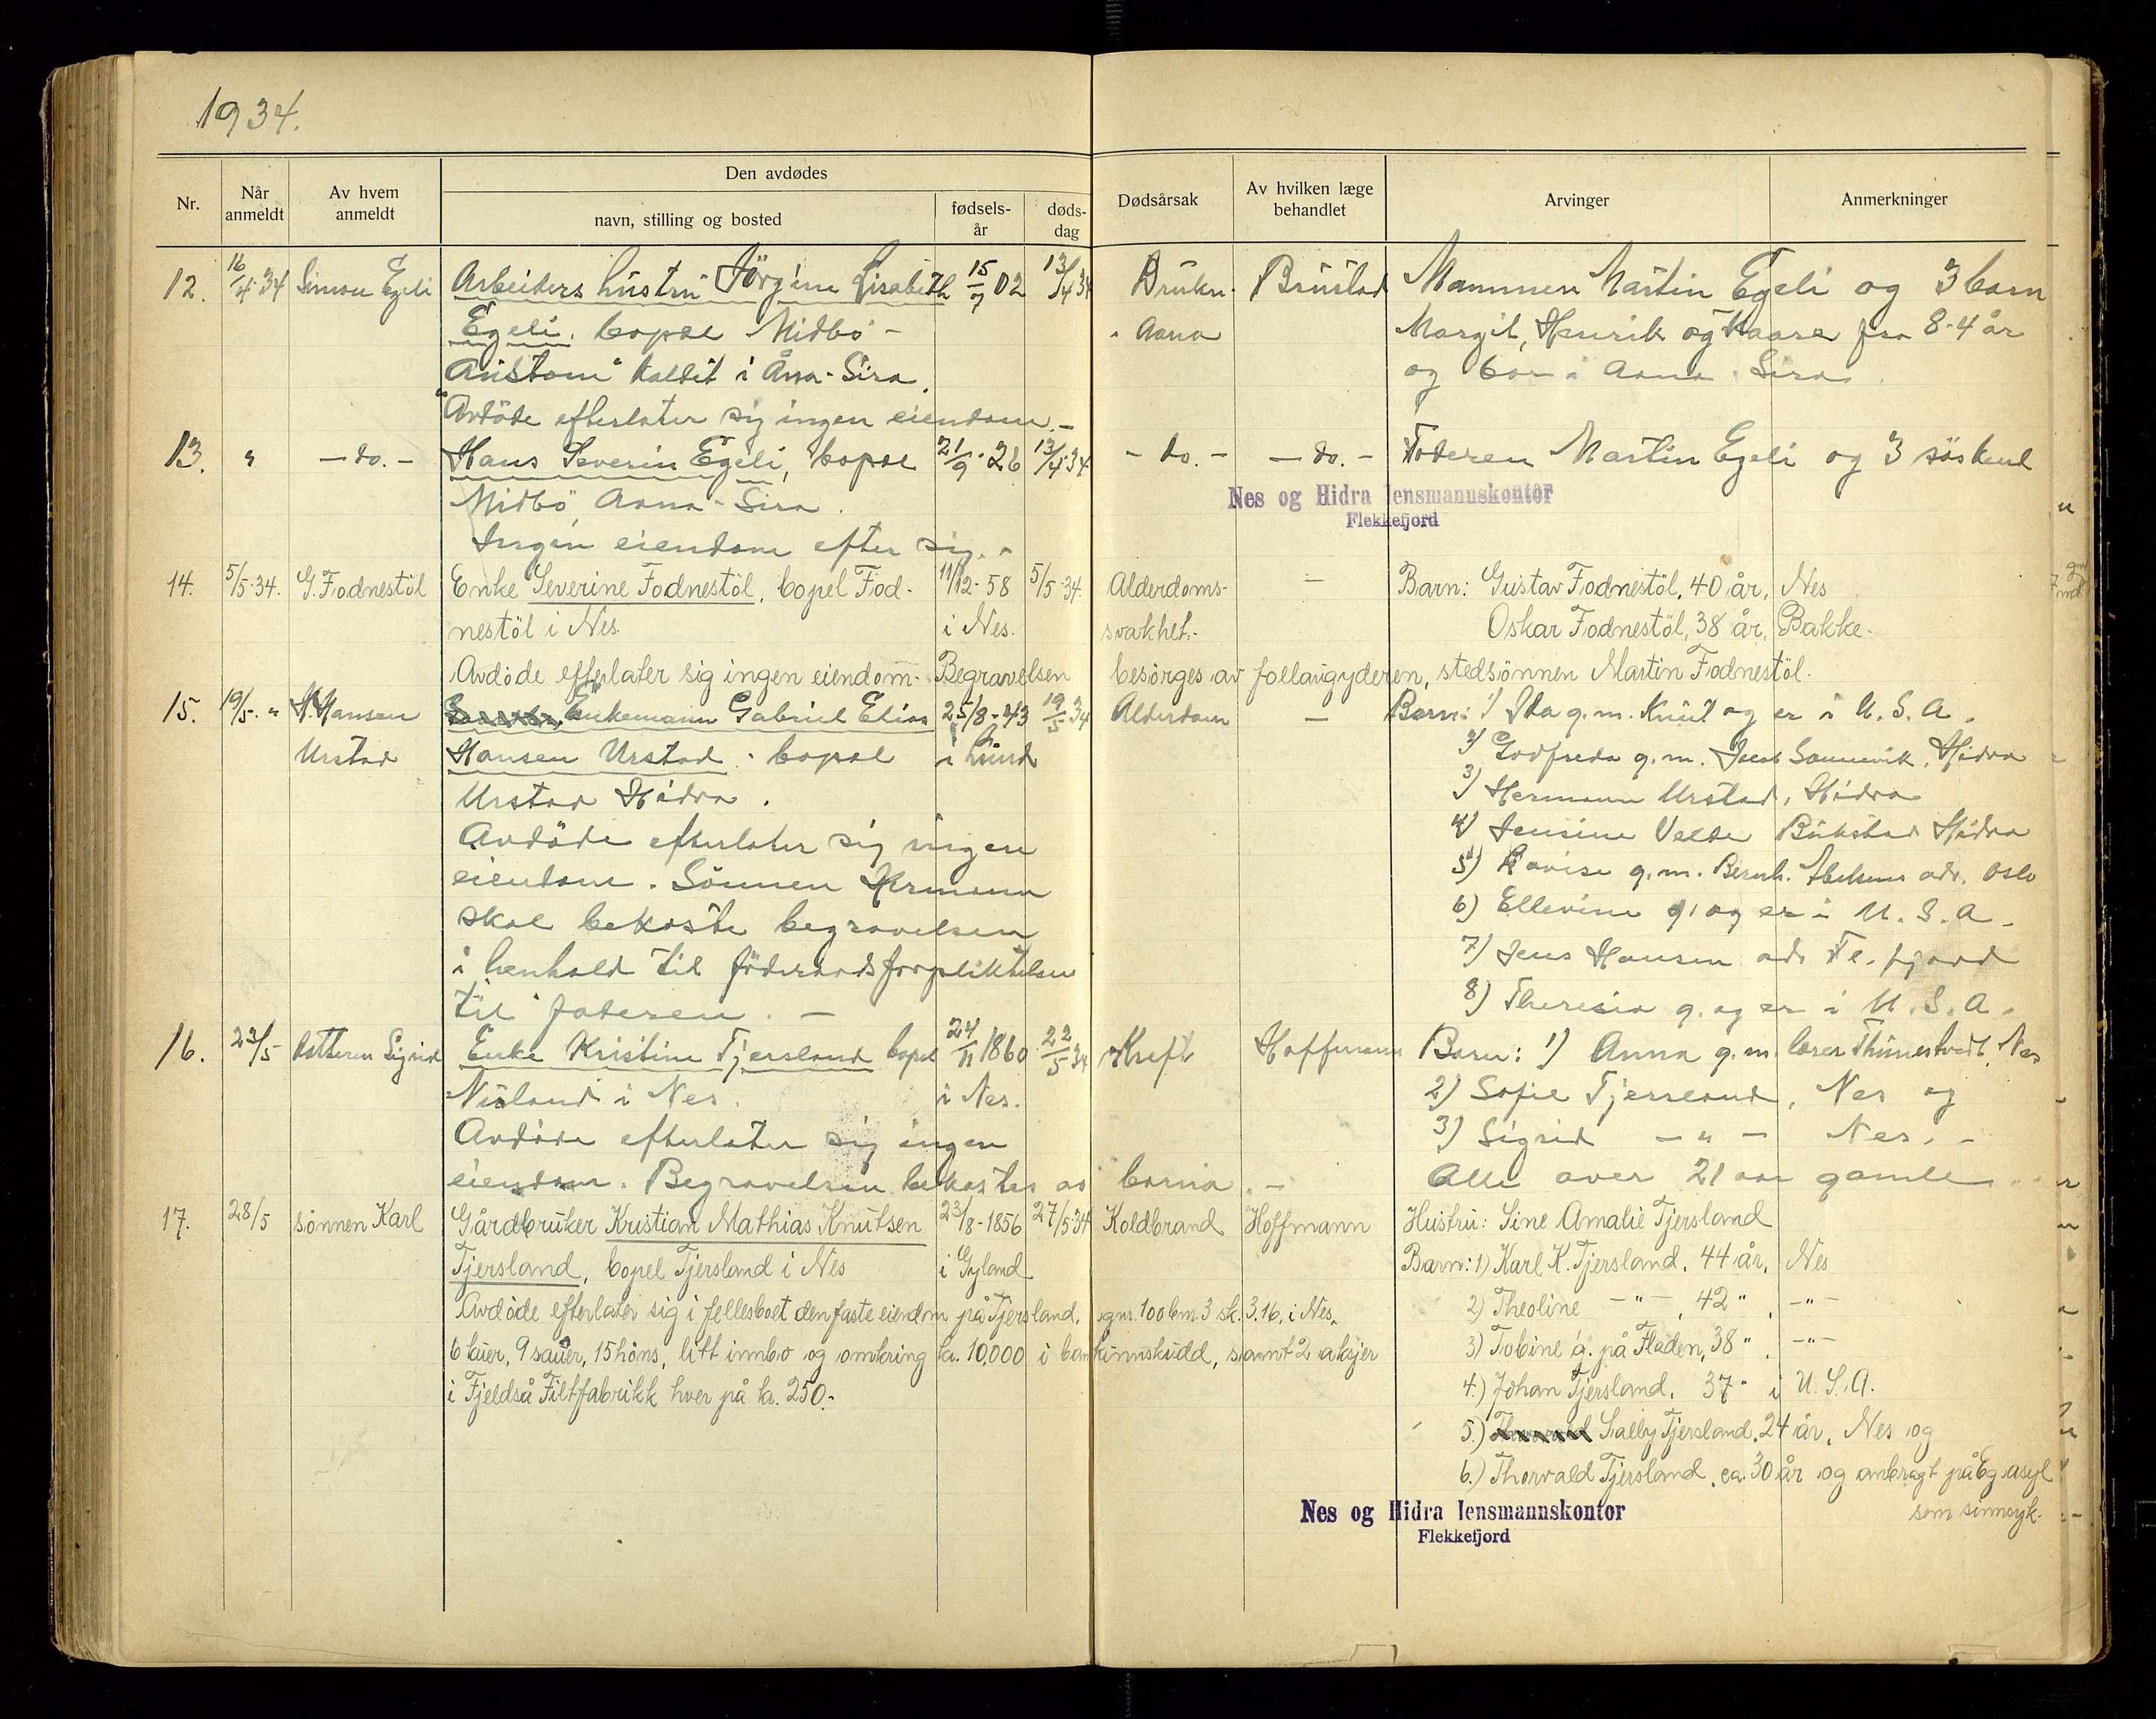 1934.
Nr. Når anmeldt Av hvem anmeldt Den avdødes navn, stilling og bosted fødsels-år døds-dag Dødsårsak Av hvilken læge behandlet Arvinger Anmerkninger
12. 16/4 34 Simon Egeli Arbeiders hustru Jörgine Lisabeth 15/7 02 13/4 34 Drukn. Brustad Mannen Martin Egeli og 3 barn
Egeli, bopæl Midbö - Aana Margit, Henrik og Kaare fra 8-4 år
kaldet i Åna-Sira. og bor i Aana Sira.
Avdöde efterlater sig ingen eiendom. -
13. " - do. - Hans Severin Egeli, bopæl 21/9 - 26 13/4 34 - do. - - do. - Faderen Martin Egeli og 3 söskend
Midbö Aana-Sira.
Nes og Hidra lensmannskontor
Flekkefjord
Ingen eiendom efter sig. -
14. 5/5-34. G. Fodnestöl Enke Severine Fodnestöl, bopel Fod- 11/12-58 5/5-34. Alderdoms- — Barn: Gustav Fodnestöl, 40 år, Nes
nestöl i Nes. i Nes. svakhet.- Oskar Fodnestöl, 38 år, Bakke.
Avdöde efterlater sig ingen eiendom. Begravelsen besörges av follaugyderen, stedsönnen Martin Fodnestöl.
15. 19/5. " H. Hansen Enkemann Gabriel Elias 25/8-43 19/5 34 Alderdom — Barn: 1) Ida g.m. Knut og er i U.S.A.
Urstad Hansen Urstad - bopæl i Lund 2) Godfreda g.m. Sannevik, Hidra
Urstad Hidra. 3) Hermann Urstad, Hidra
Avdöde efterlater sig ingen 4) Jensine Velde Hidra
eiendom. Sönnen Hermann 5) Lovise g.m. Bernh. adr. Oslo
skal bekoste begravelsen 6) Ellevine g. og er i U.S.A.
i henhold til föderaadsforpliktelsen 7) Jens Hansen adr. Fl.fjord
til faderen. - 8) Theresia g. og er i U.S.A.
16. 23/5 datteren Sigrid Enke Kristine Tjersland bopæl 24/11 1860 22/5 34 Kreft Hoffmann Barn: 1) Anna g.m. lærer Thunestvedt, Nes
Nuland i Nes. i Nes. 2) Sofie Tjersland, Nes og
Avdöde efterlater sig ingen 3) Sigrid - " - Nes. -
eiendom. Begravelsen bekostes av barna. - Alle over 21 aar gamle
17. 28/5 sønnen Karl Gårdbruker Kristian Mathias Knutsen 23/8-1856 27/5 34 Koldbrand Hoffmann Hustru: Sine Amalie Tjersland
Tjersland, bopel Tjersland i Nes i Gyland Barn: 1) Karl K. Tjersland, 44 år, Nes
Avdöde efterlater sig i fellesboet den faste eiendom på Tjersland, gnr. 100 bnr. 3 sk. 3.16, i Nes, 2) Theoline - " - , 42 " , - " -
6 kuer, 9 sauer, 15 höns, litt innbo og omkring kr. 10,000 i bankinnskudd, samt 2 aksjer 3) Tobine g. på Fladen, 38 " , - " -
i Fjeldså Filtfabrikk hver på kr. 250.- 4.) Johan Tjersland, 37 " i U.S.A.
5.) Sally Tjersland, 24 år, Nes og
6.) Thorvald Tjersland, ca. 30 år og anbragt på Eg asyl
som sinnsyk.
Nes og Hidra lensmannskontor
Flekkefjord